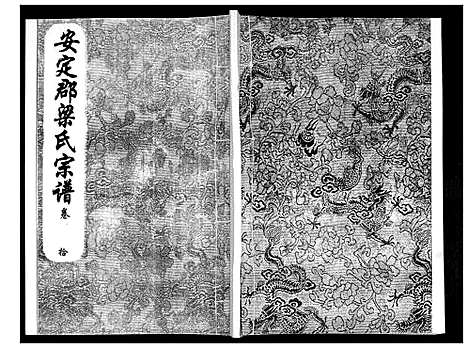 安定郡梁氏宗谱
卷
拾